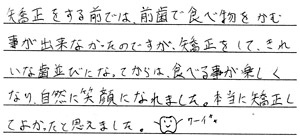 矯正をする前では、前歯で食べ物をかむ
事が出来なかったのですが、矯正をして、きれ
いな歯並びになってからは、食べる事が楽しく
なり、自然に笑顔になれました。本当に矯正し
てよかったと思えました。 ワーイ